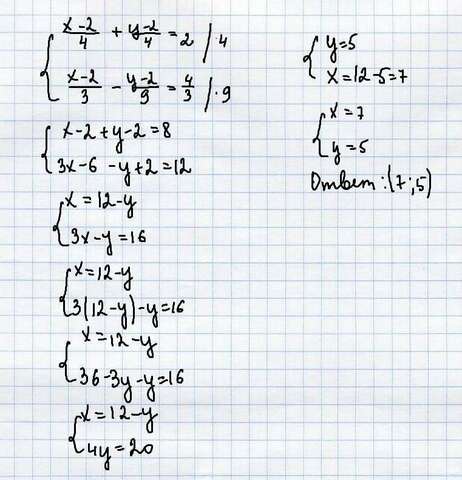 { (x-2)/4 + (y-2)/4 = 2 / ·4
(x-2)/3 - (y-2)/9 = 4/3 / ·9
{ x-2+y-2=8
3x-6-y+2=12
{ x=12-y
3x-y=16
{ x=12-y
3(12-y)-y=16
{ x=12-y
36-3y-y=16
{ x=12-y
4y=20
{ y=5
x=12-5=7
{ x=7
y=5
Ответ: (7;5)